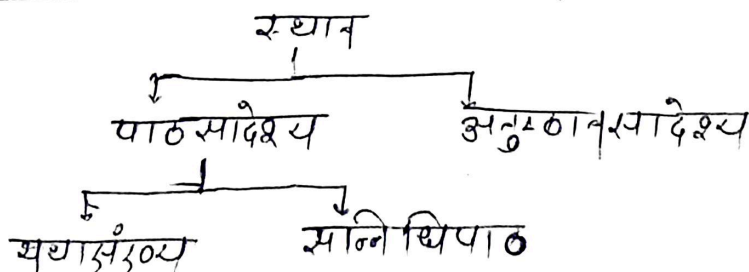 स्थान
पाठसादेश्य अनुष्ठानसादेश्य
यथासंख्य सन्निधिपाठ